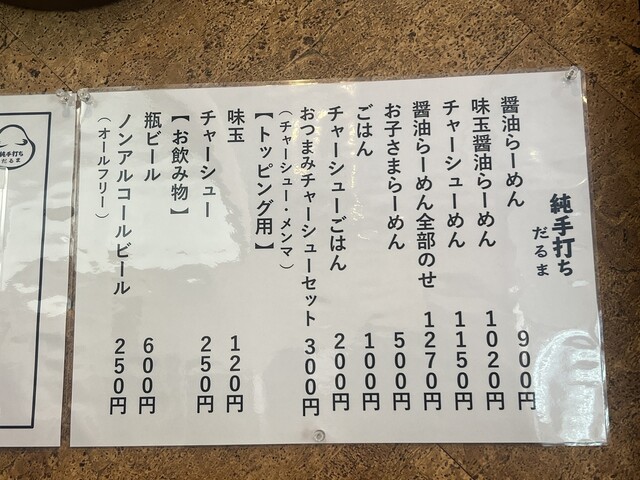 純手打ち
だるま
醤油らーめん 900円
味玉醤油らーめん 1020円
チャーシューめん 1150円
醤油らーめん全部のせ 1270円
お子さまらーめん 500円
ごはん 100円
チャーシューごはん 200円
おつまみチャーシューセット 300円
（チャーシュー・メンマ）
【トッピング用】
味玉 120円
チャーシュー 250円
【お飲み物】
瓶ビール 600円
ノンアルコールビール 250円
（オールフリー）
純手打ち
だるま